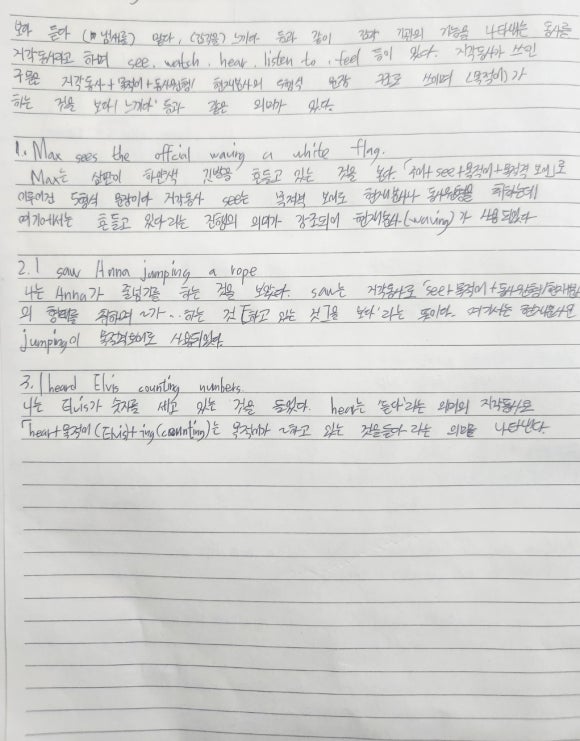 보다 듣다 (냄새를) 맡다, (감정을) 느끼다 등과 같이 감각 기관의 기능을 나타내는 동사를
지각동사라고 하며 see, watch, hear, listen to, feel 등이 있다. 지각동사가 쓰인
구문은 지각동사 + 목적어 + 동사원형 / 현재분사의 5형식 문장 꼴로 쓰이며 (목적어)가
하는 것을 보다/느끼다' 등과 같은 의미가 있다.
1. Max sees the offcial waving a white flag.
Max는 심판이 하얀색 깃발을 흔들고 있는 것을 본다. 「주어 + see + 목적어 + 목적격 보어」로
이루어진 5형식 문장이다 지각동사 see는 목적격 보어로 현재분사나 동사원형을 취하는데
여기에서는 흔들고 있다라는 진행의 의미가 강조되어 현재분사(waving)가 사용되었다
2. I saw Anna jumping a rope
나는 Anna가 줄넘기를 하는 것을 보았다. saw는 지각동사로 「see + 목적어 + 동사원형/현재분사
의 형태를 취하며 ~가 ..하는 것 [하고 있는 것]을 보다'라는 뜻이다. 여기서는 현재분사로
jumping이 목적격보어로 사용되었다.
3. I heard Elvis counting numbers.
나는 Elvis가 숫자를 세고 있는 것을 들었다. hear는 '듣다'라는 의미의 지각동사로
「hear + 목적어(Elvis) + ing(counting)는 목적어가 ~하고 있는 것을 듣다 라는 의미를 나타낸다.